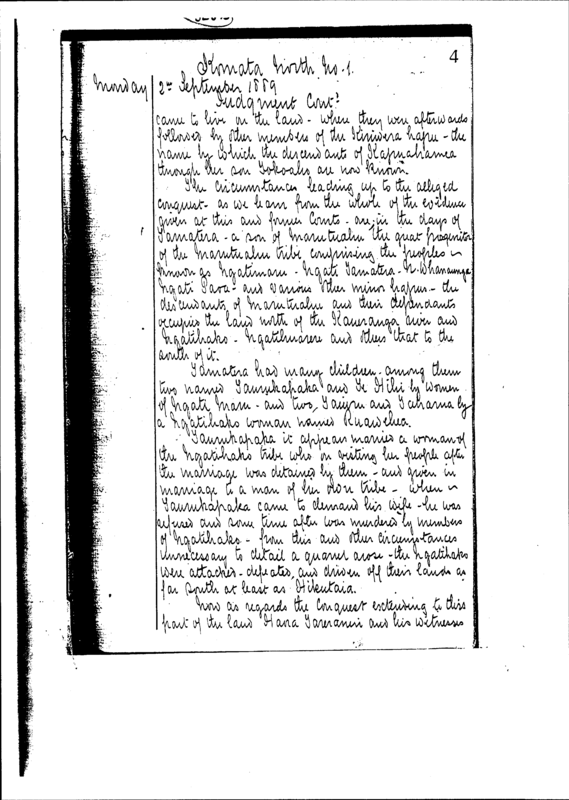 4
Komata North No. 1.
Monday 2nd September 1889
Judgment Contd
came to live on the land - where they were afterwards
followed by other members of the hapu - the
name by which the descendants of Kapuahamea
through her son are now known.
The circumstances leading up to the alleged
conquest - as we learn from the whole of the evidence
given at this and former Courts - are, in the days of
Tamatera - a son of Marutuahu the great progenitor
of the Marutuahu tribe comprising the peoples
known as Ngatimaru - Ngati Tamatera - N. Whanaunga
Ngati Paoa and various other minor hapus - the
descendants of Marutuahu and their dependants
occupied the land north of the Kaueranga river and
Ngatihako - Ngatihuarere and others that to the
south of it.
Tamatera had many children - among them
two named Taurukapaka and Te Hihi by women
of Ngati Maru - and two, Taiuru and Taharua by
a Ngatihako woman named Ruawehea.
Taurukapaka it appears married a woman of
the Ngatihako tribe who on visiting her people after
the marriage was detained by them - and given in
marriage to a man of her own tribe - when
Taurukapaka came to demand his wife - he was
refused and some time after was murdered by members
of Ngatihako - from this and other circumstances
unnecessary to detail a quarrel arose - the Ngatihako
were attacked - defeated, and driven off their lands as
far south at least as Hikutaia.
Now as regards the Conquest extending to this
part of the land Hara and his witnesses